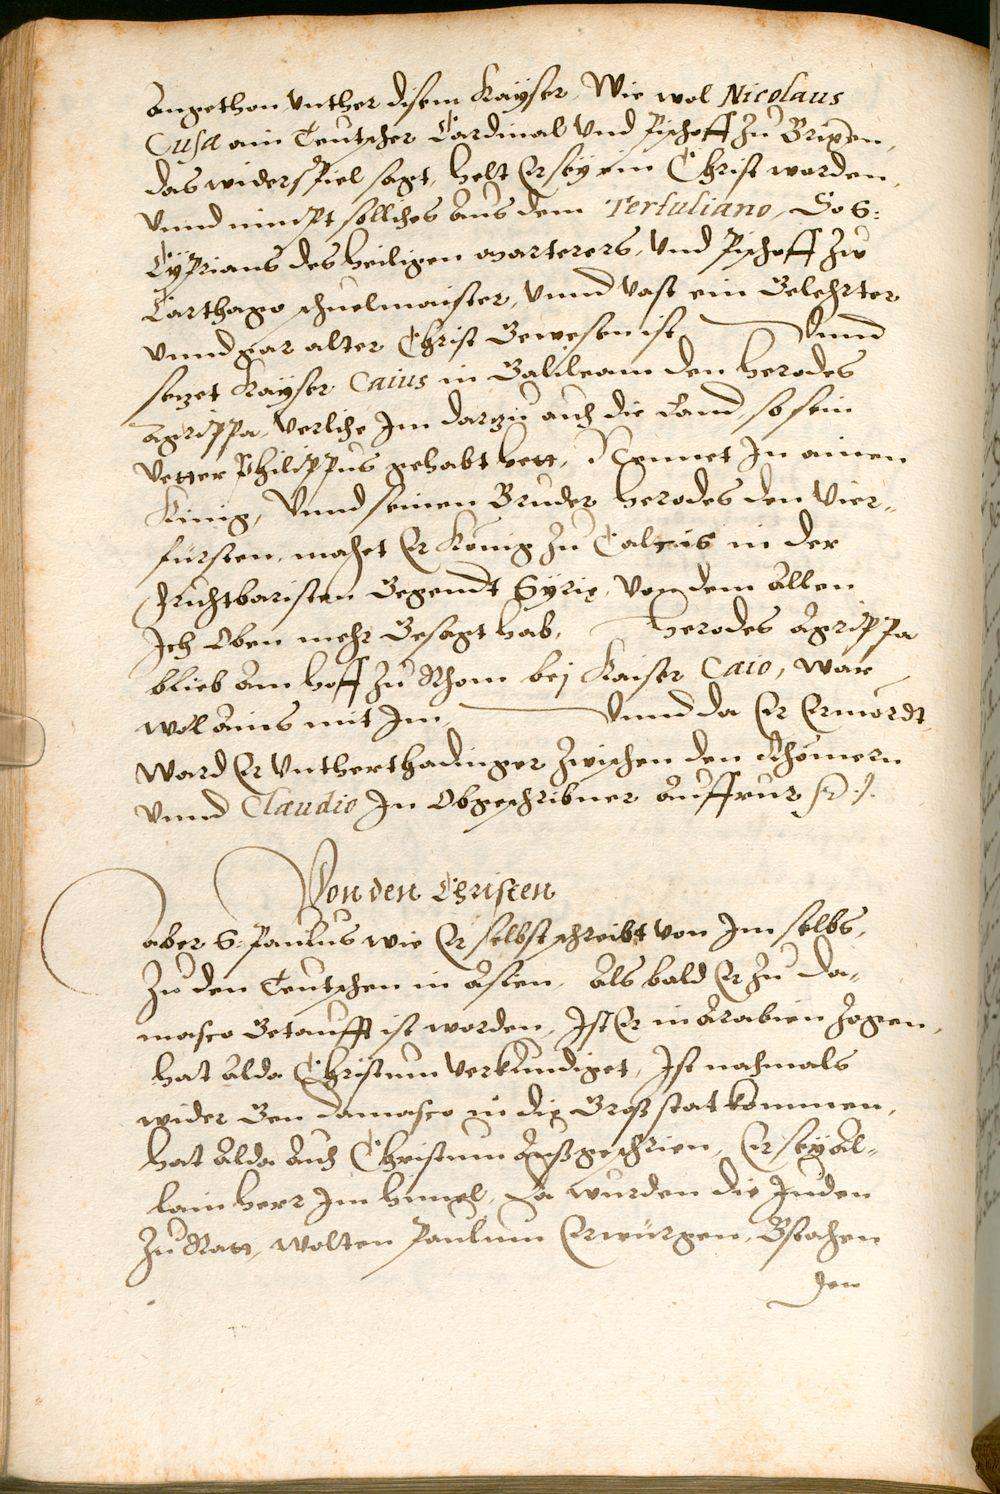 angethon vnther disem Kayser, Wie wol Nicolaus
Cusa ain Teutscher Cardinal vnd Pischoff zu Brixen,
das widerspiel sagt, helt Er sey ein Christ worden,
vnnd nimpt solliches aus dem Tertuliano, So S:
Cyprians des heiligen marterers, vnd Pischoff zw
Carthago schuelmaister, vnnd vast ein Gelehrter
vnnd gar alter Christ Gewesen ist Vnnd
sezet Kayser Caius in Galileam den herodes
Agrippa, verlihe Im darzu auch die Land, so sein
Vetter Philippus gehabt hett, Nennet In ainen
Kinig, Vnnd seinen Bruder herodes den Vier-
fürsten, machet Er König zu Calcis in der
fruchtbaristen Gegendt Syrie, von dem allen
Ich Oben mehr Gesagt hab, herodes Agrippa
blieb am hoff zu Rhom bej Kaiser Caio, war
wol ains mit Im, Vnnd da Er Ermördt,
ward Er Vntherthadinger zwischen den Rhömern
vnnd Claudio In Obgeschribner auffrur
Von den Christen
aber S: Paulus wie Er selbst schreibt von Im selbs,
zu den Teutschen in Asien, als bald Er zu Da-
masco Getaufft ist worden, Ist Er in Arabien zogen,
hat alda Christum verkündiget, Ist nachmals
wider Gen Damasco in die Groß stat kommen,
hat alda auch Christum außgeschrien, Er sey al-
lain herr Im himel, Da wurden die Juden
zu Ratt, wolten Paulum Erwürgen, Bstachen
den